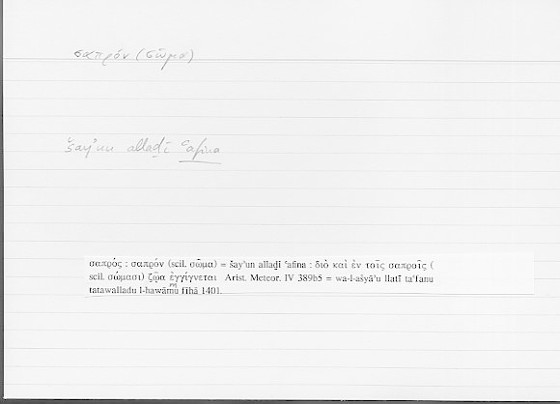 σαπρόν (σῶμα)
šayʾun allaḏī ʿafina
σαπρός : σαπρόν (scil. σῶμα) = šayʾun allaḏī ʿafina : διὸ καὶ ἐν τοῖς σαπροῖς (
scil. σώμασι) ζῷα ἐγγίγνεται Arist. Meteor. IV 389b5 = wa-l-ašyāʾu llatī taʿfanu
tatawalladu l-hawāmu fīhā 1401.